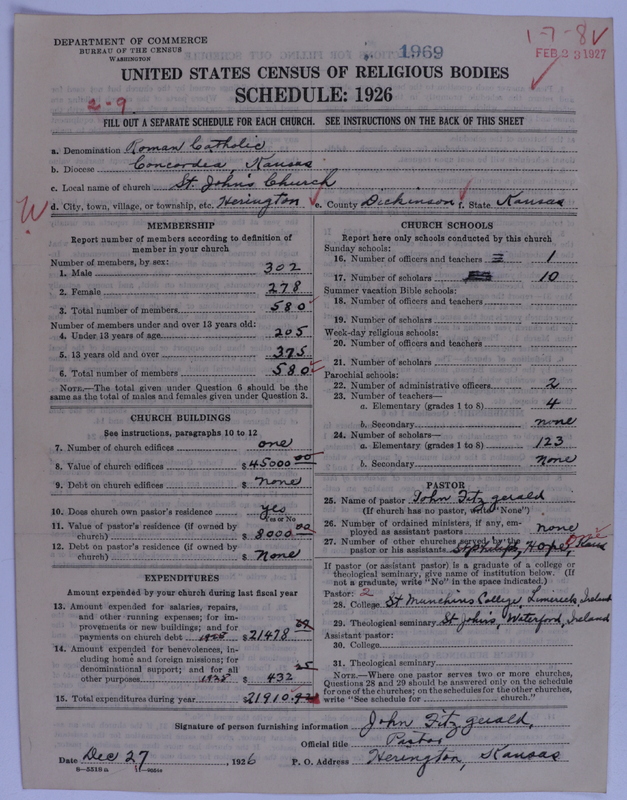 DEPARTMENT OF COMMERCE
BUREAU OF THE CENSUS
WASHINGTON
1969
1-7-8
FEB 23 1927
UNITED STATES CENSUS OF RELIGIOUS BODIES
SCHEDULE: 1926
2-9
FILL OUT A SEPARATE SCHEDULE FOR EACH CHURCH. SEE INSTRUCTIONS ON THE BACK OF THIS SHEET
a. Denomination Roman Catholic
b. Diocese Concordia Kansas
c. Local name of church St. John's Church
W
d. City, town, village, or township, etc. Herington e. County Dickinson f. State Kansas
MEMBERSHIP
Report number of members according to definition of
member in your church
Number of members, by sex:
1. Male 302
2. Female 278
3. Total number of members 580
Number of members under and over 13 years old:
4. Under 13 years of age 205
5. 13 years old and over 375
6. Total number of members 580
NOTE.—The total given under Question 6 should be
same as the total of males and females given under Question 3.
CHURCH BUILDINGS
See instructions, paragraphs 10 to 12
7. Number of church edifices one
8. Value of church edifices $45000 00
9. Debt on church edifices $ none
10. Does church own pastor's residence yes
Yes or No
11. Value of pastor's residence (if owned by
church) $8000 00
12. Debt on pastor's residence (if owned by
church) $ None
EXPENDITURES
Amount expended by your church during last fiscal year
13. Amount expended for salaries, repairs,
and other running expenses; for im-
provements or new buildings; and for
payments on church debt 1925 $21478
14. Amount expended for benevolences, in-
cluding home and foreign missions; for
denominational support; and for all
other purposes 1925 $ 432 25
15. Total expenditures during year 21910.
CHURCH SCHOOLS
Report here only schools conducted by this church
Sunday schools:
16. Number of officers and teachers 1
17. Number of scholars 10
Summer vacation Bible schools:
18. Number of officers and teachers
19. Number of scholars
Week-day religious schools:
20. Number of officers and teachers
21. Number of scholars
Parochial schools:
22. Number of administrative officers 2
23. Number of teachers—
a. Elementary (grades 1 to 8) 4
b. Secondary none
24. Number of scholars—
a. Elementary (grades 1 to 8) 123
b. Secondary None
PASTOR
25. Name of pastor John Fitzgerald
(If church has no pastor, write "None")
26. Number of ordained ministers, if any, em-
ployed as assistant pastors none
27. Number of other churches served by the
pastor or his assistants St Philips, Hope, Kans
If pastor (or assistant pastor) is a graduate of a college or
theological seminary, give name of institution below. (If
not a graduate, write "No" in the space indicated.)
Pastor: 2
28. College St Munchins College, Limerick, Ireland
29. Theological seminary St John's, Waterford, Ireland
Assistant pastor:
30. College
31. Theological seminary
NOTE.—Where one pastor serves two or more churches,
Questions 28 and 29 should be answered only on the schedule
for one of the churches; on the schedules for the other churches,
write "See schedule for church."
Signature of person furnishing information John Fitzgerald,
Official title Pastor
Date Dec 27, 1926 P. O. Address Herington, Kansas